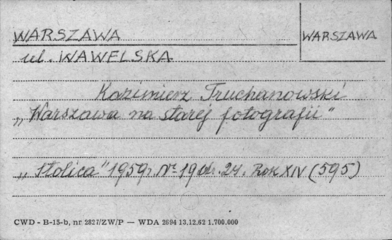 WARSZAWA
WARSZAWA
ul. WAWELSKA
Kazimierz Truchanowski
"Warszawa na starej fotografii"
"Stolica" 1959r. Nr 19 str. 24. Rok XIV (595)
CWD - B-15-b, nr 2827/ZW/P — WDA 2694 13.12.62 1.700.000